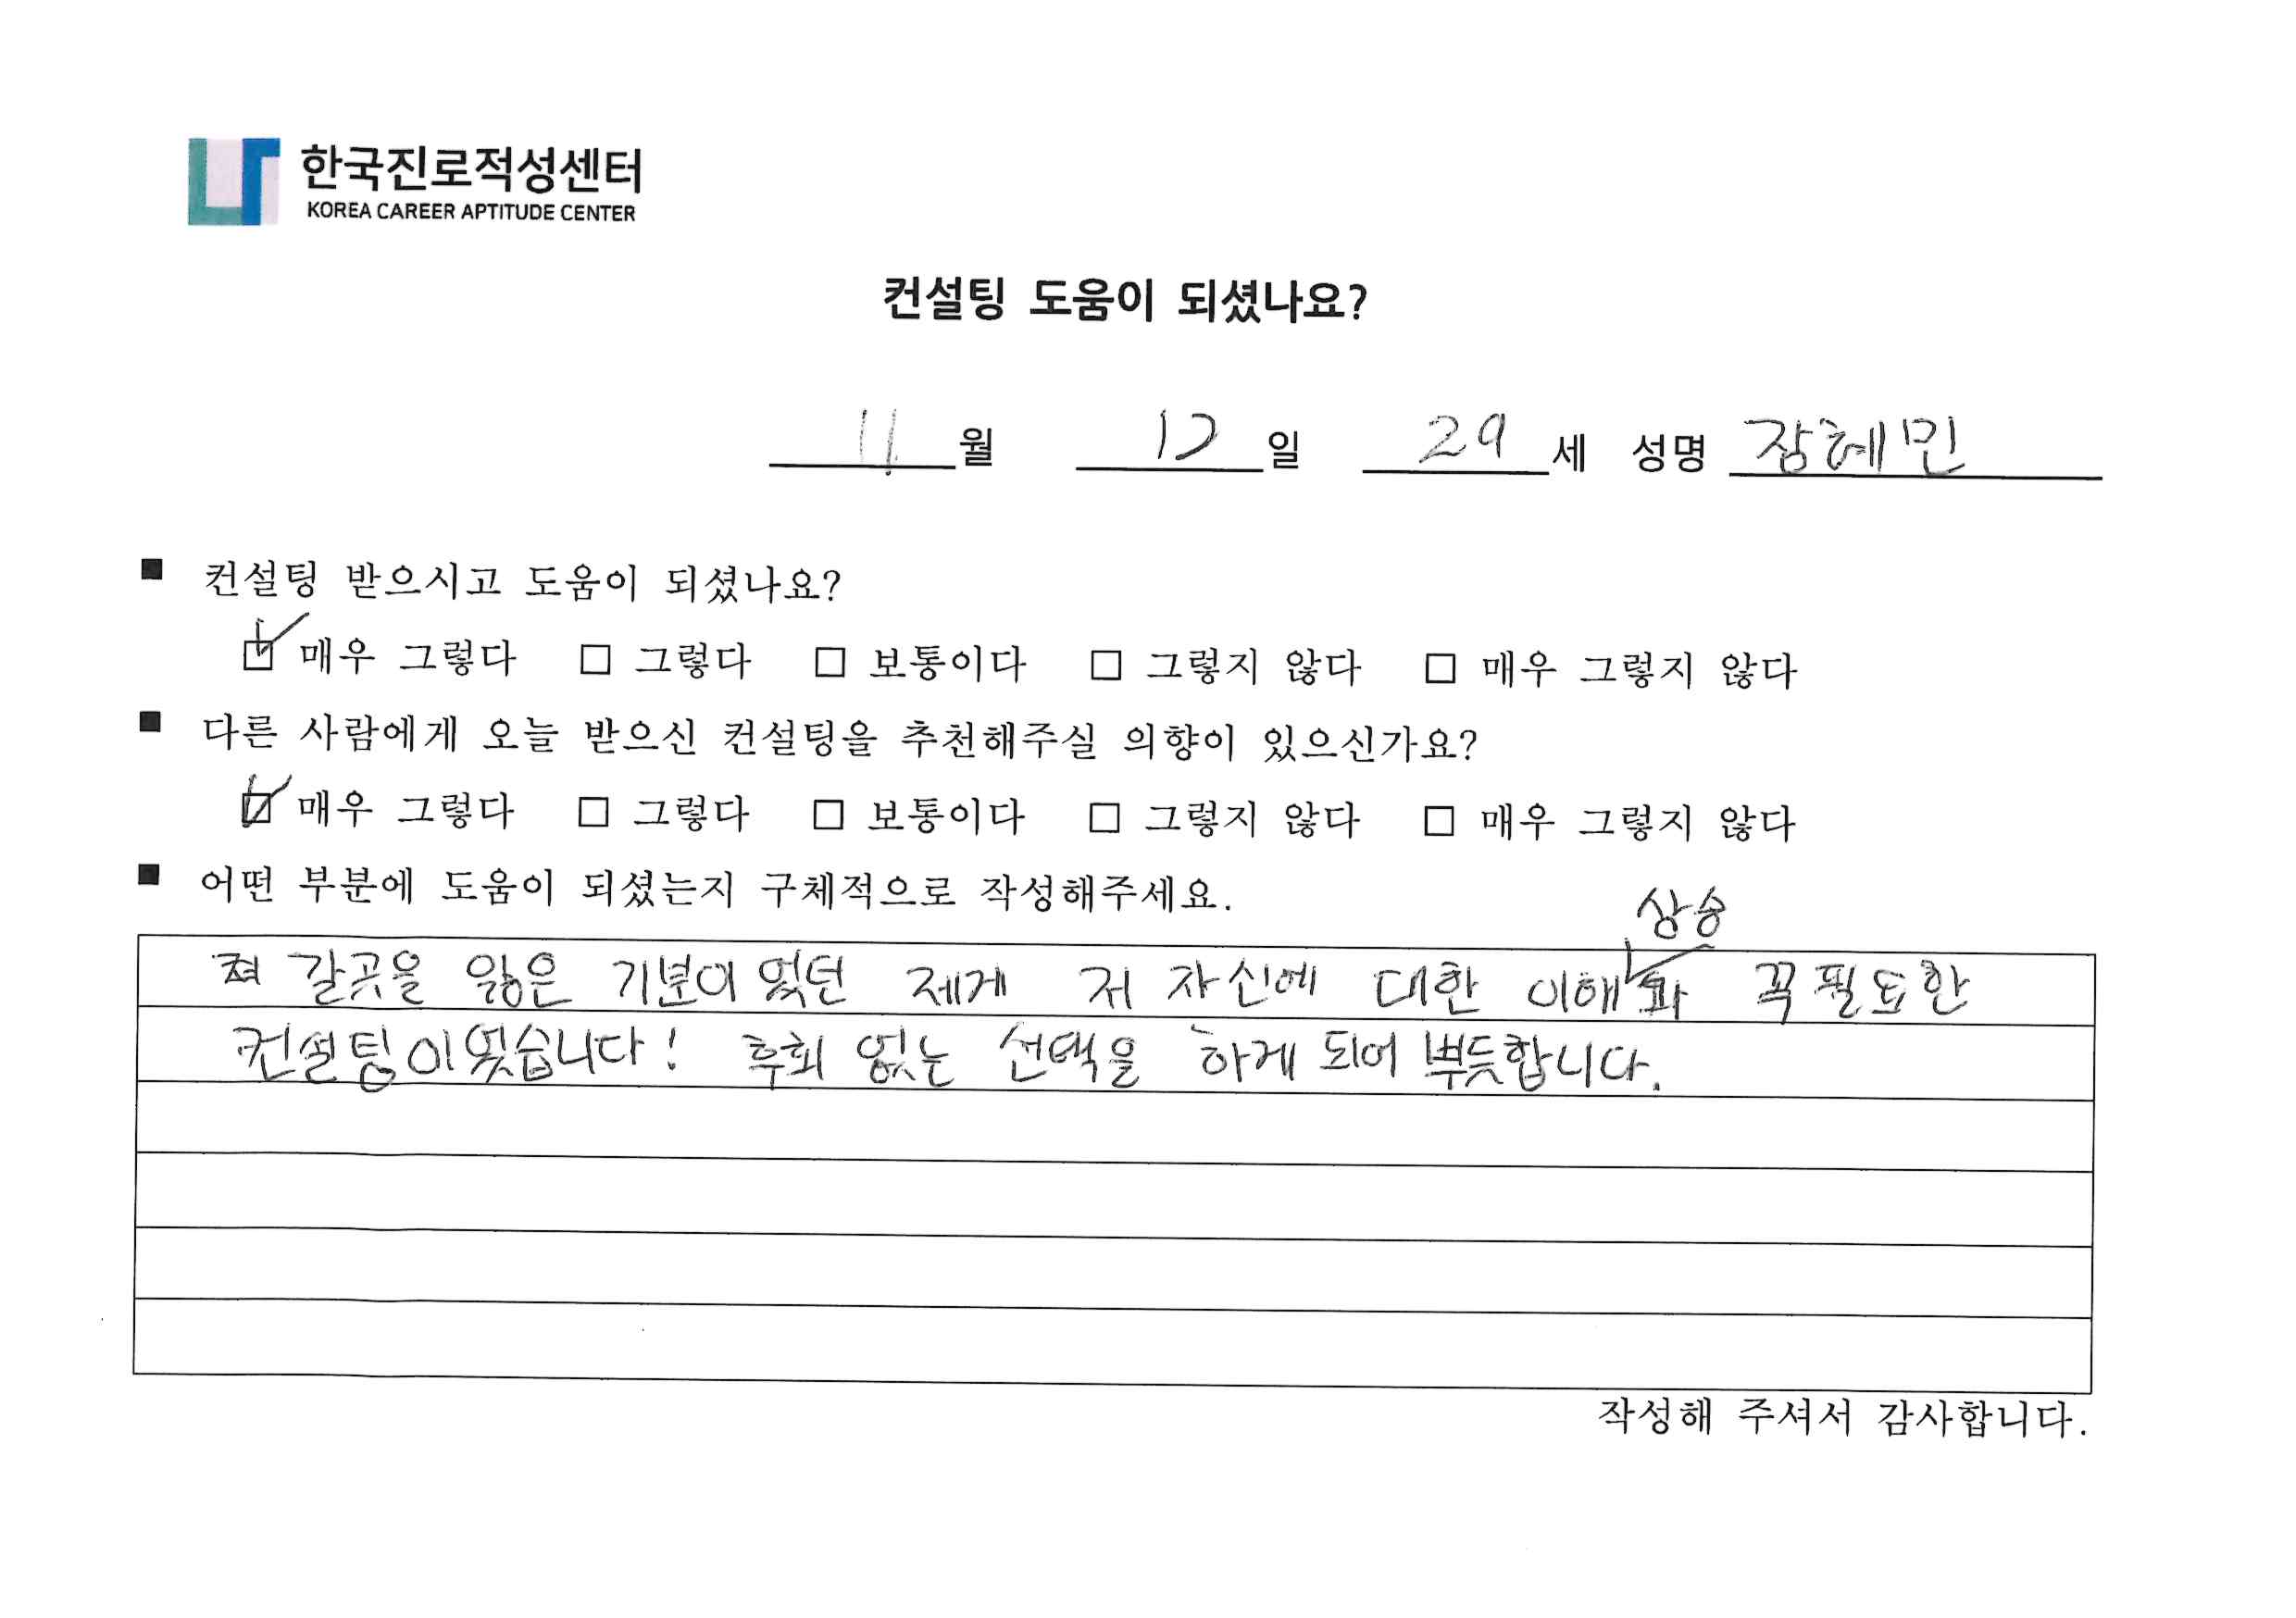 한국진로적성센터
KOREA CAREER APTITUDE CENTER
컨설팅 도움이 되셨나요?
11월 12일 29세 성명 장혜민
■ 컨설팅 받으시고 도움이 되셨나요?
☑ 매우 그렇다 □ 그렇다 □ 보통이다 □ 그렇지 않다 □ 매우 그렇지 않다
■ 다른 사람에게 오늘 받으신 컨설팅을 추천해주실 의향이 있으신가요?
☑ 매우 그렇다 □ 그렇다 □ 보통이다 □ 그렇지 않다 □ 매우 그렇지 않다
■ 어떤 부분에 도움이 되셨는지 구체적으로 작성해주세요.
상승
갈곳을 잃은 기분이었던 제게 저 자신에 대한 이해와 꼭 필요한
컨설팅이었습니다! 후회 없는 선택을 하게 되어 뿌듯합니다.
작성해 주셔서 감사합니다.